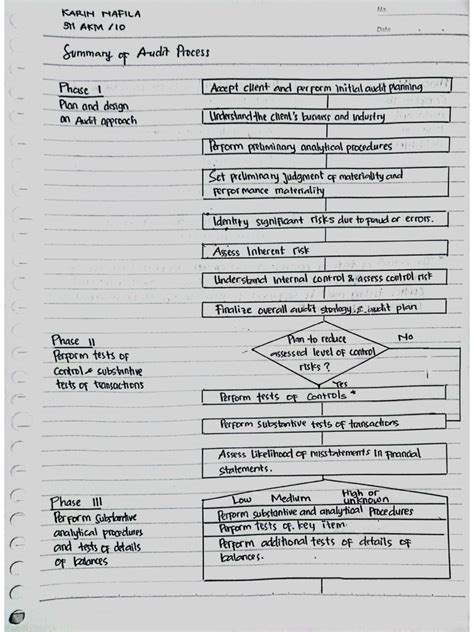 KARIN NAFILA
No.
S1 AKM / 10
Date
Summary of Audit Process
Phase I
Plan and design
an Audit approach
Accept client and perform initial audit planning
Understand the client's business and industry
Perform preliminary analytical procedures
Set preliminary judgment of materiality and
performance materiality
Identify significant risks due to fraud or errors.
Assess Inherent risk
Understand internal control & assess control risk
Finalize overall audit strategy & audit plan
Phase II
Perform tests of
control & substantive
tests of transactions
Plan to reduce
assessed level of control
risks ?
No
Yes
Perform tests of controls *
Perform substantive tests of transactions
Assess Likelihood of misstatements in financial
statements.
Phase III
Perform Substantive
analytical procedures
and tests of details
of balances
Low Medium High or
unknown
Perform substantive and analytical Procedures
Perform tests of key item
Perform additional tests of details of
balances.